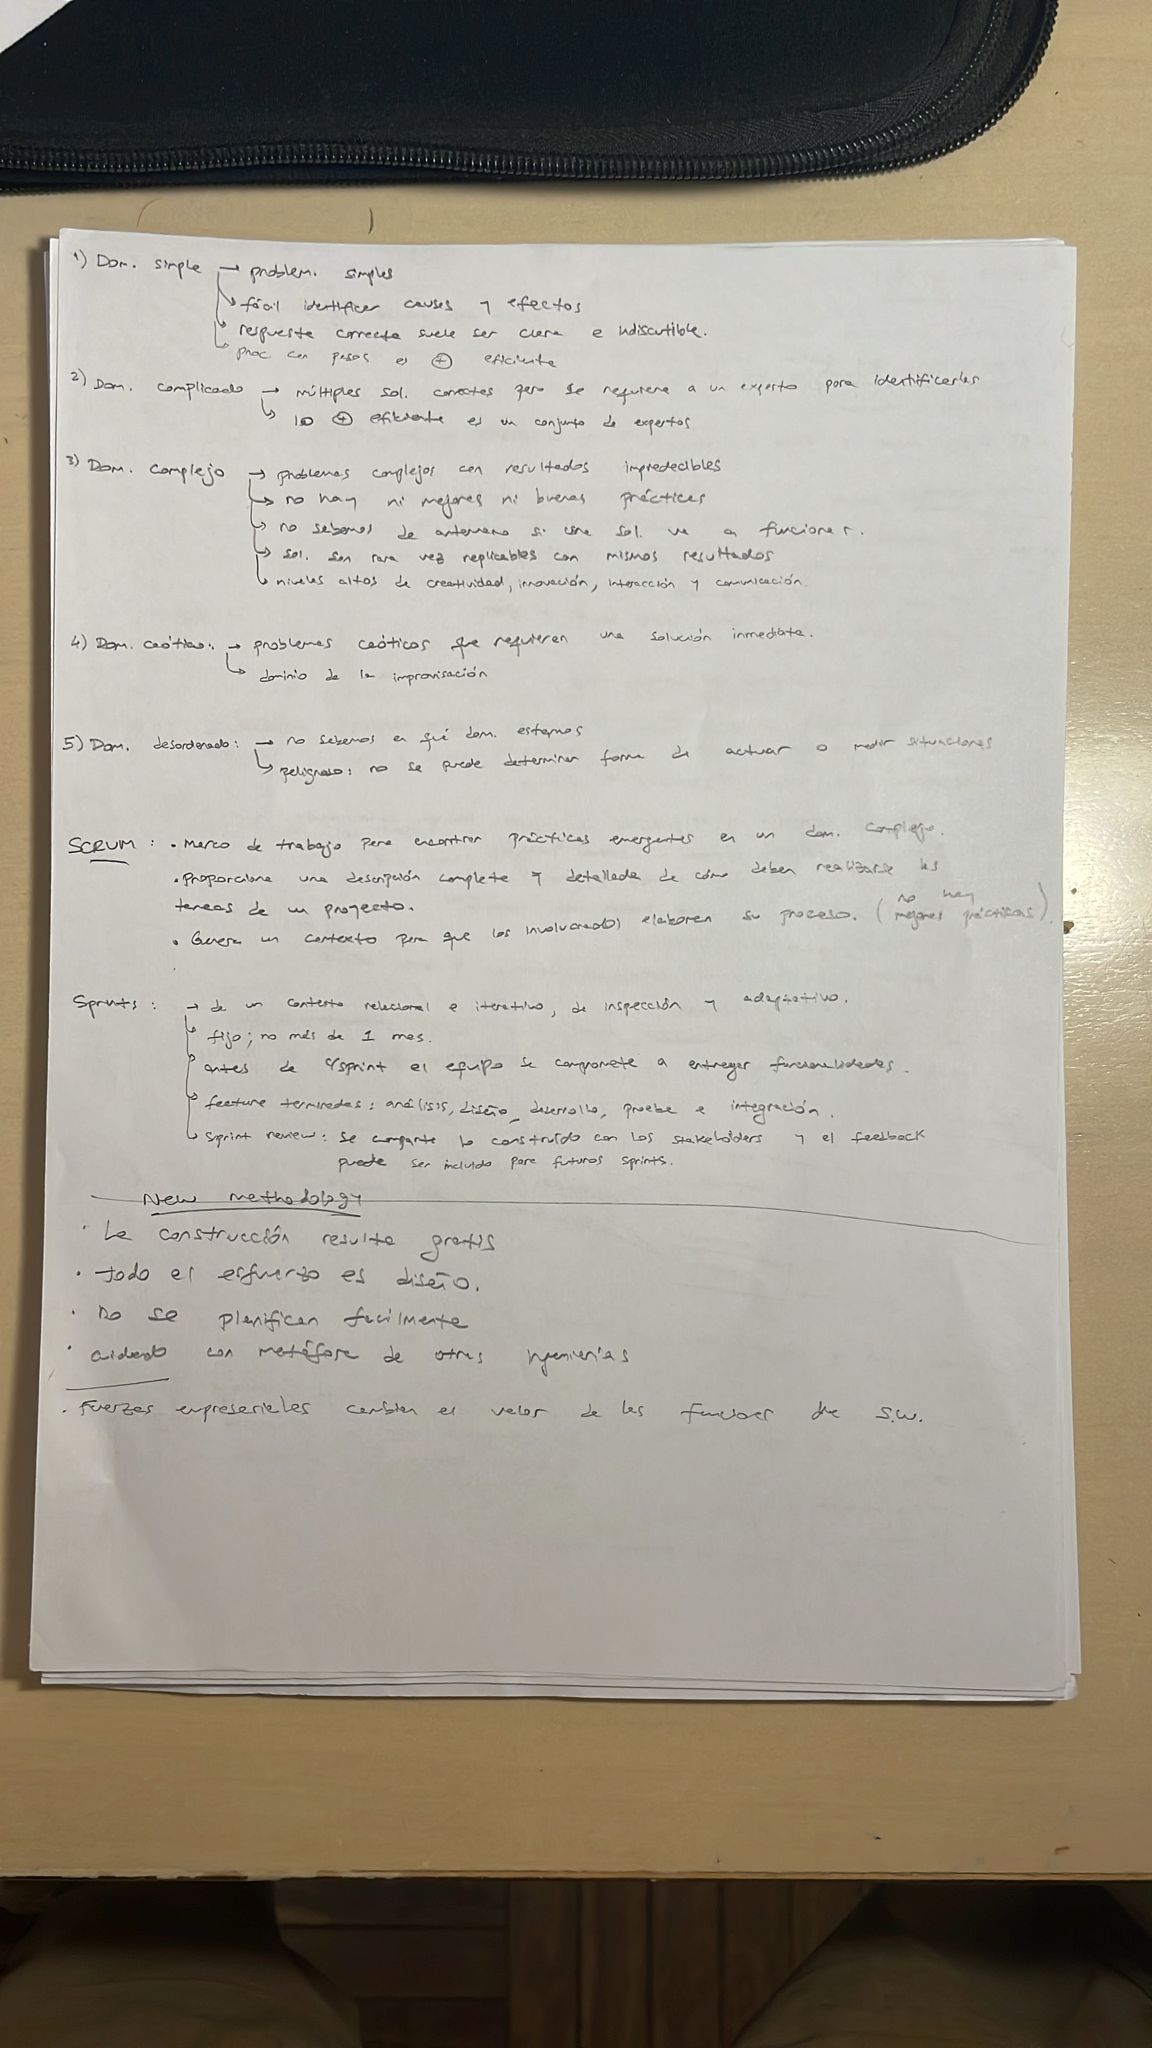 1) Dom. simple → problem. simples
↳ fácil identificar causas y efectos
↳ respuesta correcta suele ser clara e indiscutible.
↳ proc. con pasos es ⊕ eficiente
2) Dom. complicado → múltiples sol. correctas pero se requiere a un experto para identificarlas
↳ lo ⊕ eficiente es un conjunto de expertos
3) Dom. complejo → problemas complejos con resultados impredecibles
↳ no hay ni mejores ni buenas prácticas
↳ no sabemos de antemano si una sol. va a funcionar.
↳ sol. son rara vez replicables con mismos resultados
↳ niveles altos de creatividad, innovación, interacción y comunicación.
4) Dom. caótico: → problemas caóticos que requieren una solución inmediata.
↳ dominio de la improvisación
5) Dom. desordenado: → no sabemos en qué dom. estamos
↳ peligroso: no se puede determinar forma de actuar o medir situaciones
SCRUM : • Marco de trabajo para encontrar prácticas emergentes en un dom. complejo.
• Proporciona una descripción completa y detallada de cómo deben realizarse las
tareas de un proyecto. (no hay mejores prácticas).
• Genera un contexto para que los involucrados elaboren su proceso.
Sprints : → da un contexto relacional e iterativo, de inspección y adaptativo.
↳ fijo; no más de 1 mes.
↳ antes de c/sprint el equipo se compromete a entregar funcionalidades.
↳ feature terminadas: análisis, diseño, desarrollo, prueba e integración.
↳ Sprint review: se comparte lo construído con los stakeholders y el feedback
puede ser incluido para futuros sprints.
New methodology
• La construcción resulta gratis
• todo el esfuerzo es diseño.
• No se planifican facilmente
• cuidado con metáfora de otras ingenierías
• Fuerzas empresariales cambian el valor de las funciones de S.W.